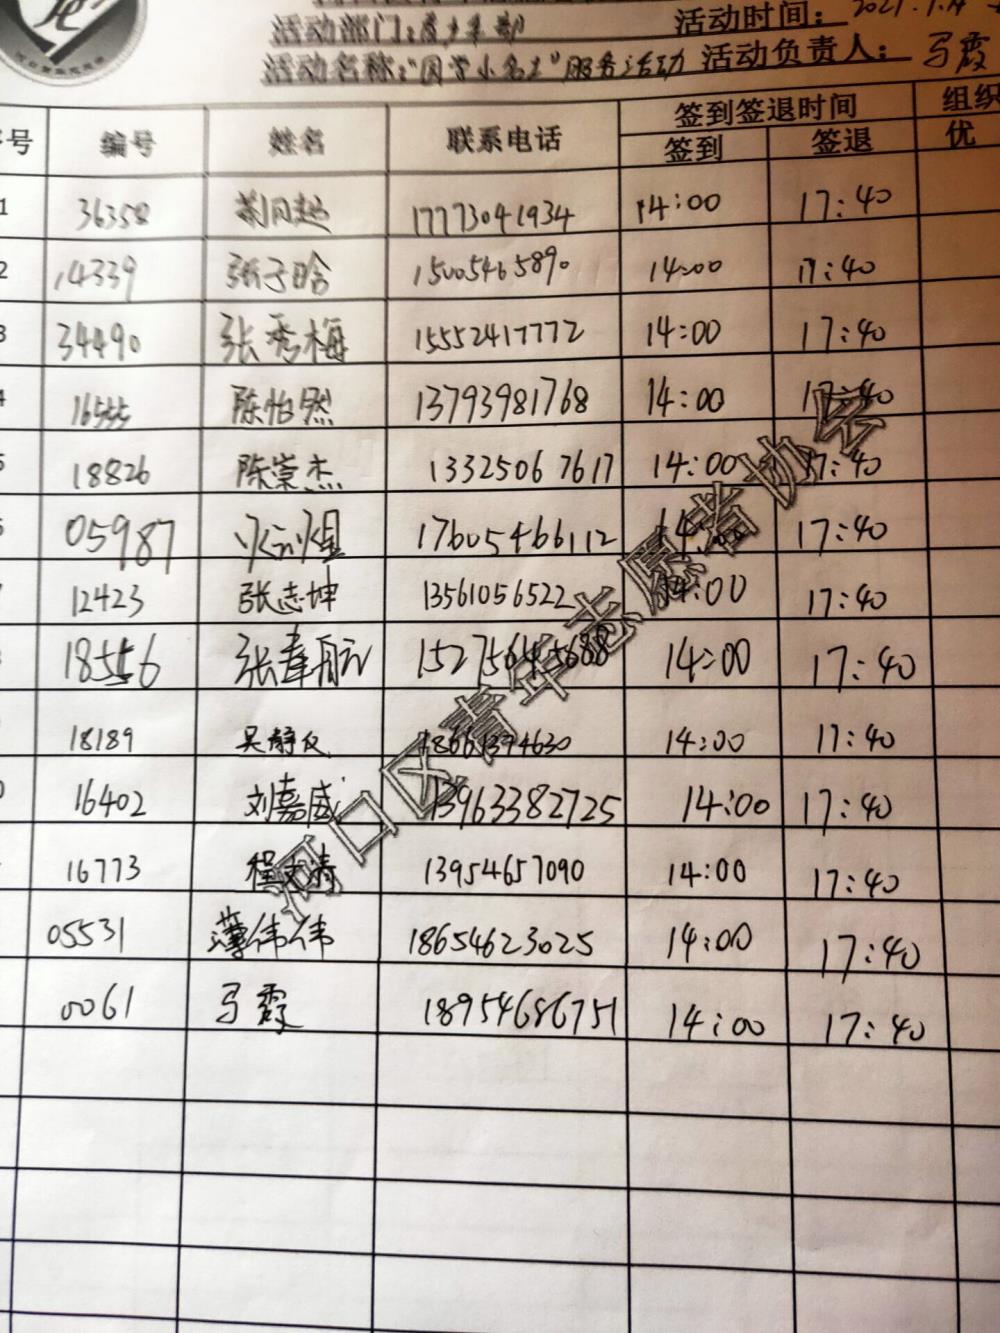 活动部门: 活动时间: 2021.
活动名称:"国学小名士"服务活动 活动负责人: 马霞
序号 编号 姓名 联系电话 签到签退时间 组织
签到 签退 优
1 36358 17773041934 14:00 17:40
2 14339 张子晗 15005465890 14:00 17:40
3 34490 张秀梅 15552417772 14:00 17:40
4 16555 陈怡然 13793981768 14:00 17:40
5 18826 陈崇杰 13325067617 14:00 17:40
6 05987 17605466112 14:00 17:40
12423 张志坤 13561056522 14:00 17:40
18556 张 航 15275645688 14:00 17:40
18189 吴静仪 18661394630 14:00 17:40
0 16402 刘嘉威 13963382725 14:00 17:40
16773 程文涛 13954657090 14:00 17:40
05531 薄伟伟 18654623025 14:00 17:40
0061 马霞 18954686751 14:00 17:40
河口区青年志愿者协会